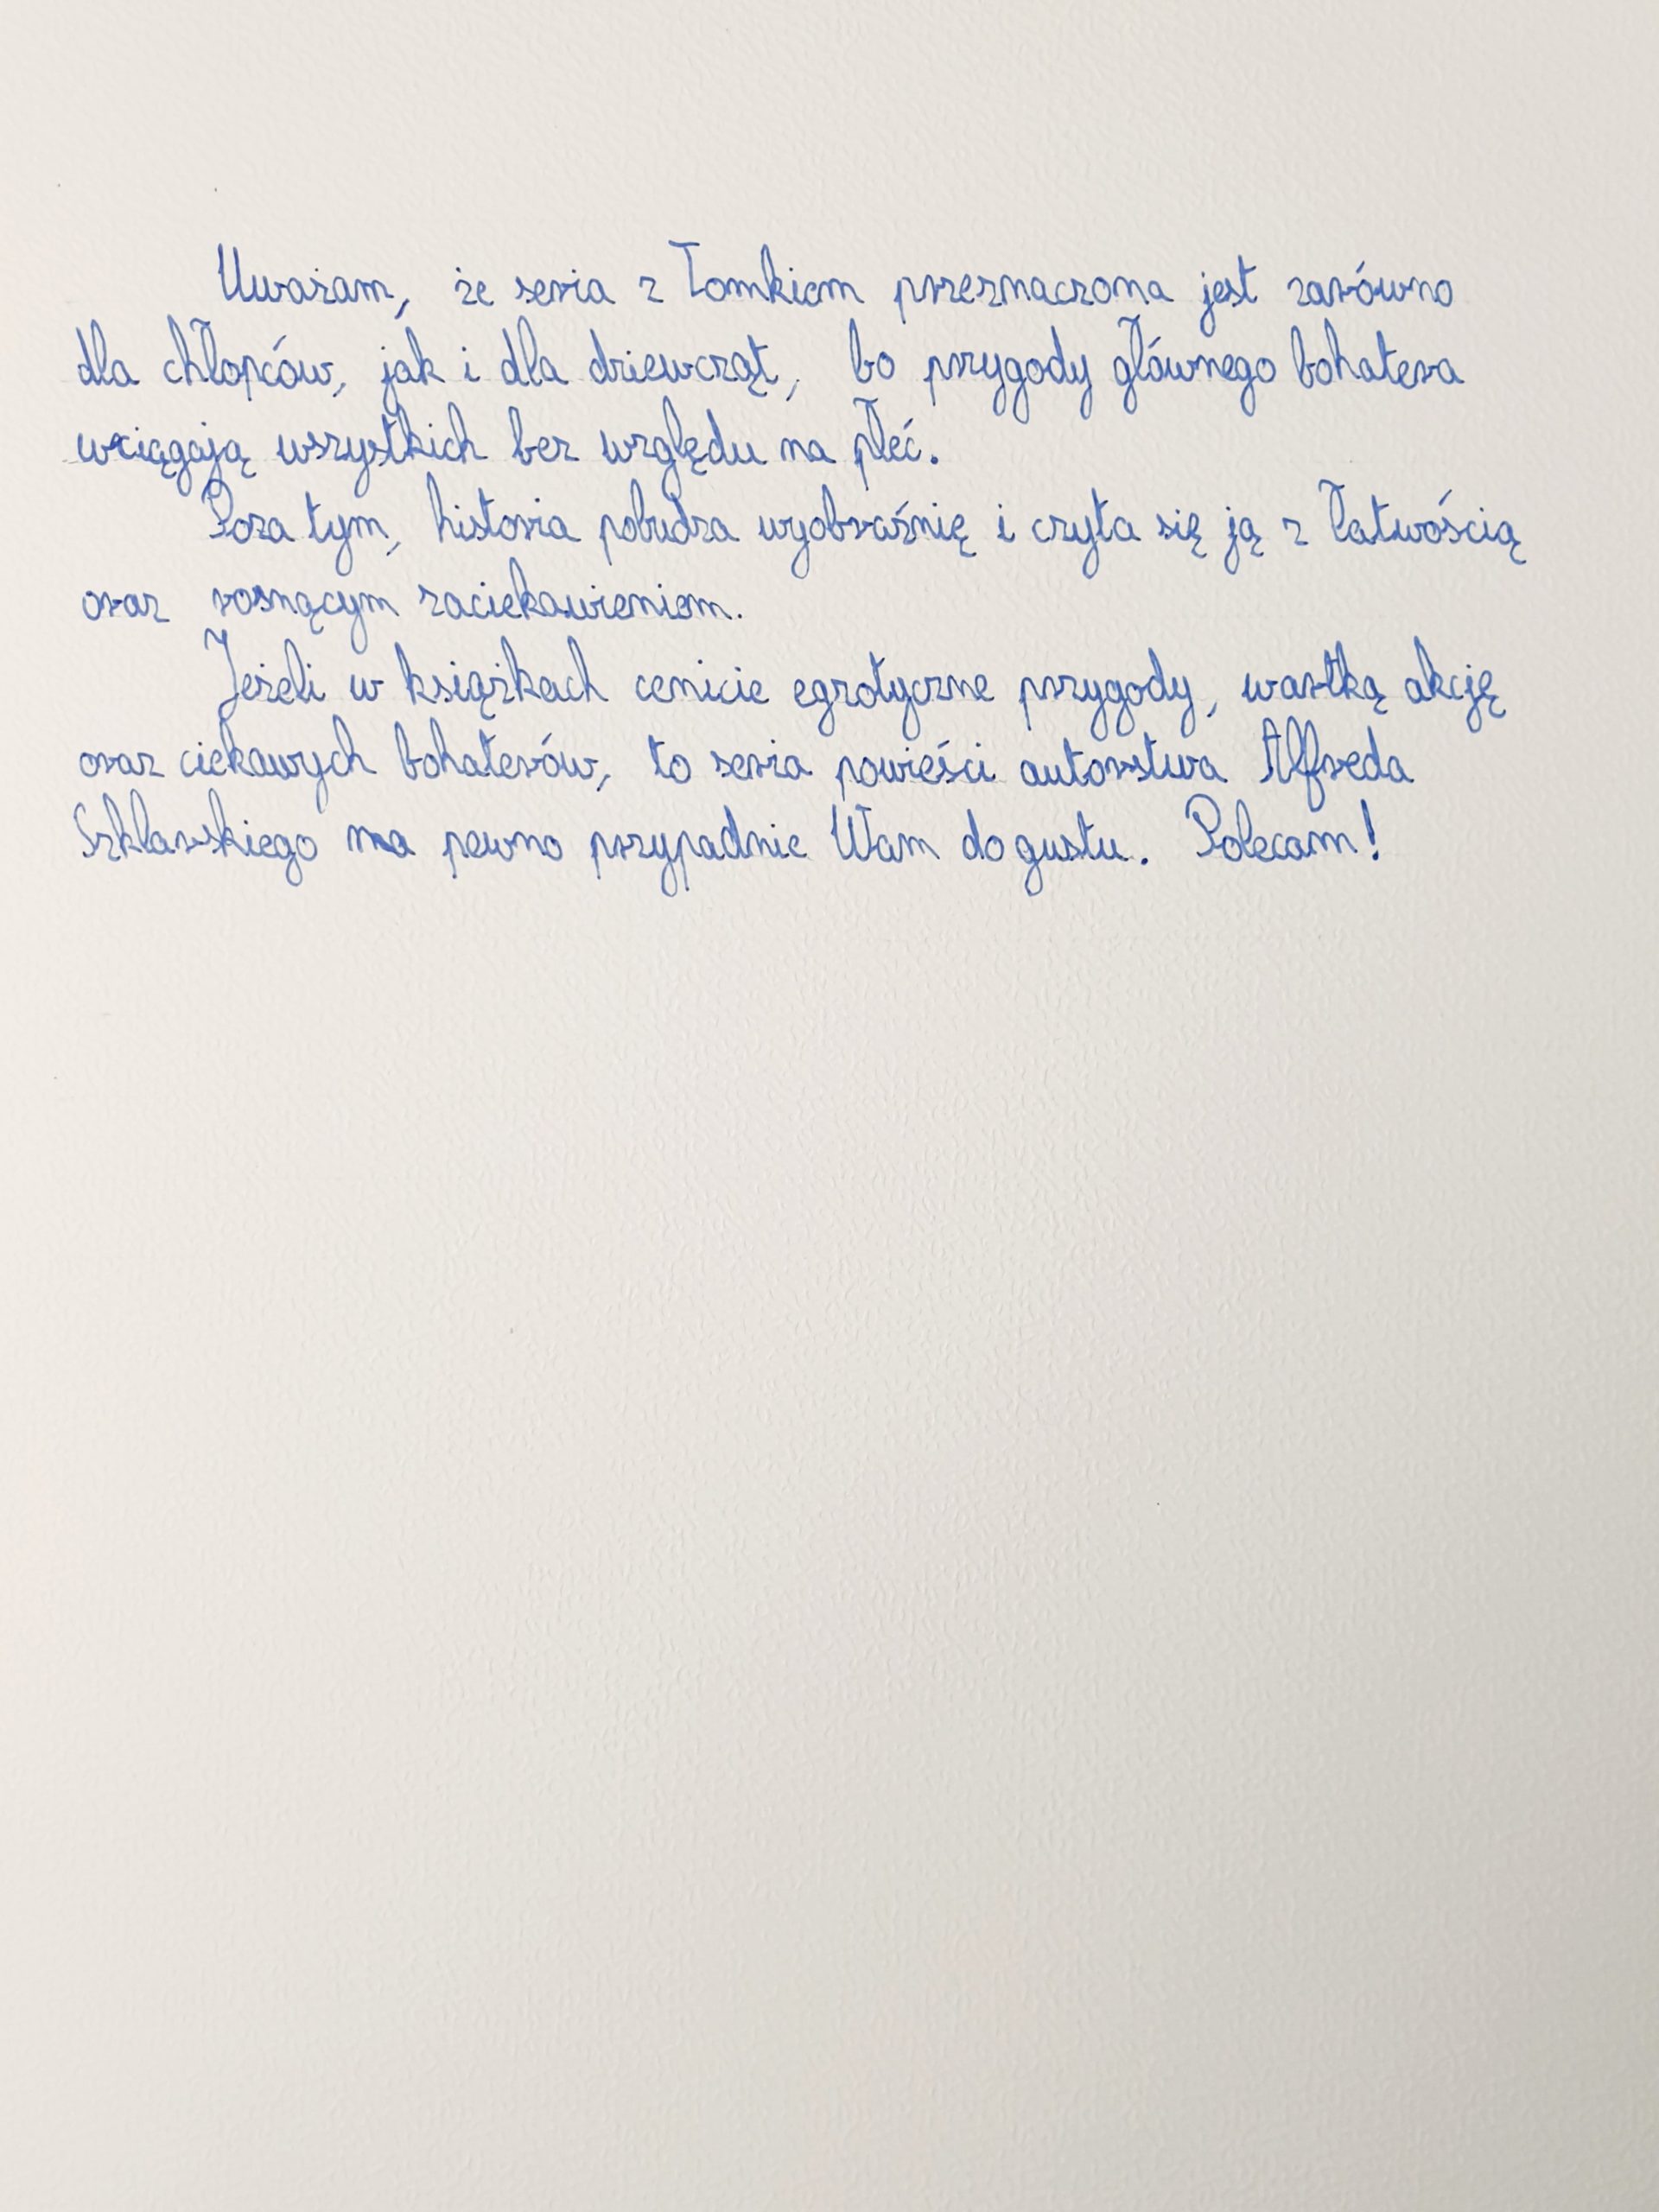 Uważam, że seria z Tomkiem przeznaczona jest zarówno
dla chłopców, jak i dla dziewcząt, bo przygody głównego bohatera
wciągają wszystkich bez względu na płeć.
Poza tym, historia pobudza wyobraźnię i czyta się ją z łatwością
oraz rosnącym zaciekawieniem.
Jeżeli w książkach cenicie egzotyczne przygody, wartką akcję
oraz ciekawych bohaterów, to seria powieści autorstwa Alfreda
Szklarskiego na pewno przypadnie Wam do gustu. Polecam!